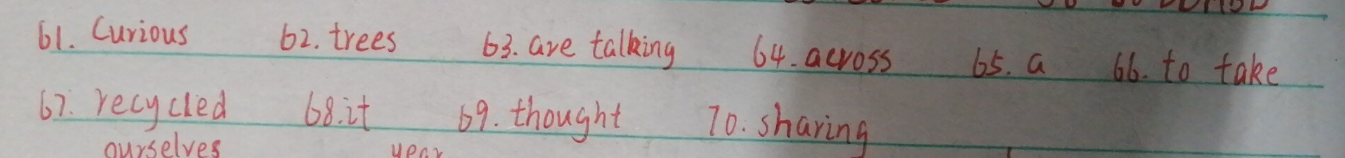 61. Curious 62. trees 63. are talking 64. across 65. a 66. to take
67. recycled 68. it 69. thought 70. sharing
ourselves year